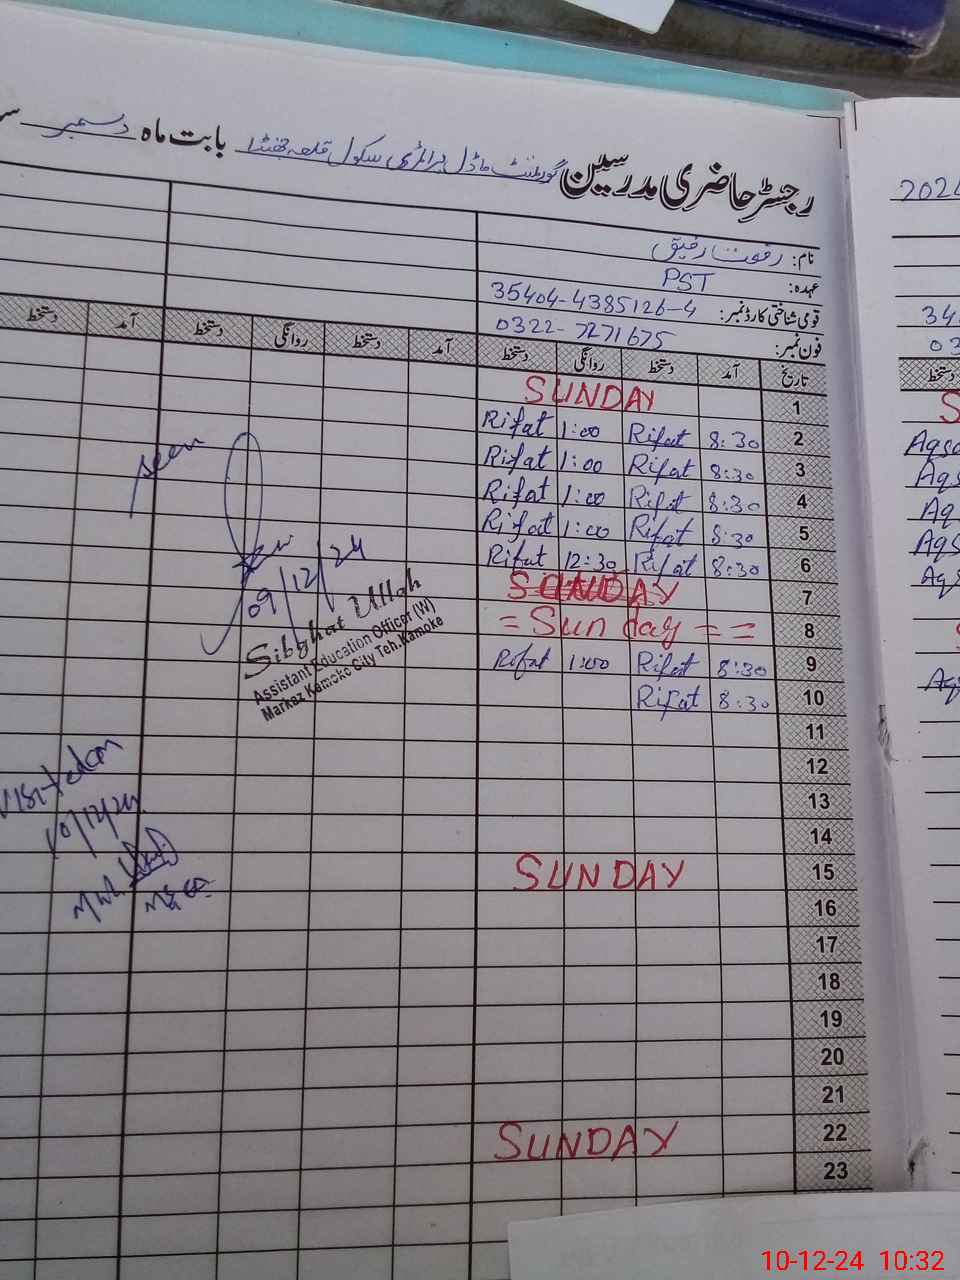 رجسٹر حاضری مدرسین گورنمنٹ ماڈل پرائمری سکول قلعہ جھنڈا بابت ماہ دسمبر
2024
نام: رفعت رفیق
عہدہ: PST
قومی شناختی کارڈ نمبر: 35404-4385126-4
فون نمبر: 0322-7271675
تاریخ آمد دستخط روانگی دستخط آمد دستخط روانگی دستخط آمد دستخط
1 SUNDAY
2 8:30 Rifat 1:00 Rifat
3 8:30 Rifat 1:00 Rifat
4 8:30 Rifat 1:00 Rifat
5 8:30 Rifat 1:00 Rifat
6 8:30 Rifat 12:30 Rifat
7 SUNDAY
8 = Sunday = =
9 8:30 Rifat 1:00 Rifat
10 8:30 Rifat
11
12
13
14
15 SUNDAY
16
17
18
19
20
21
22 SUNDAY
23
seen
09/12/24
Sibghat Ullah
Assistant Education Officer (W)
Markaz Kamoke City Teh. Kamoke
10/12/24
دستخط
10-12-24 10:32